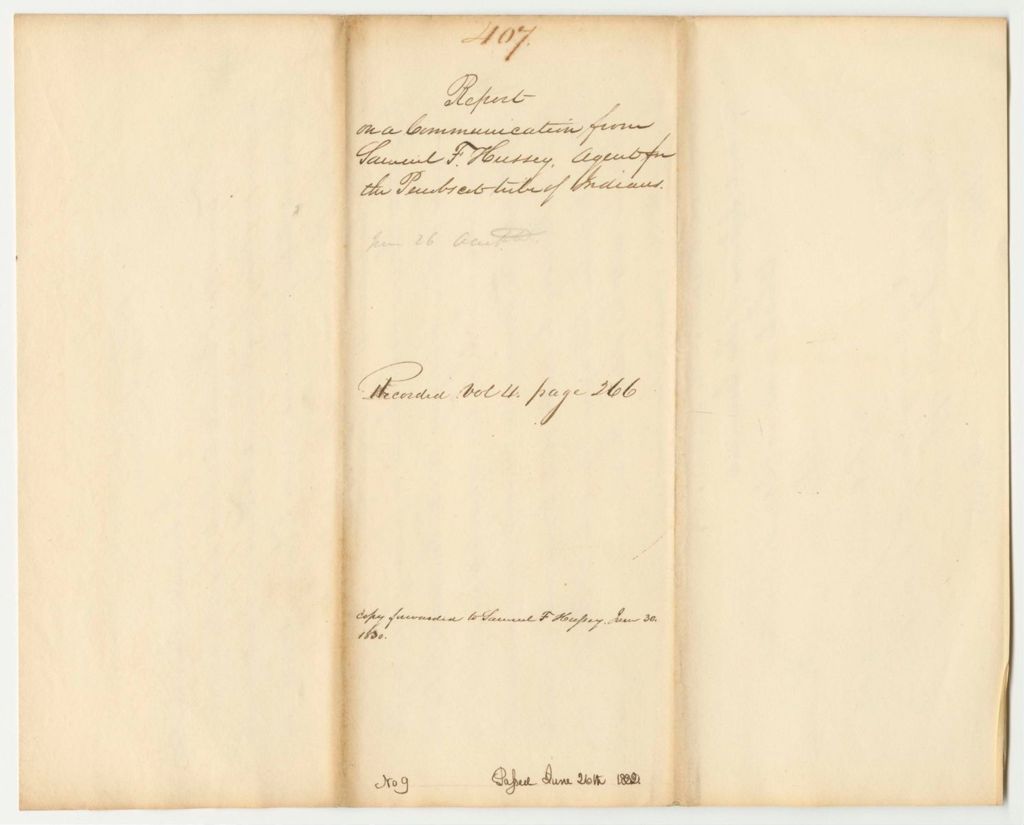 407.
Report
on a Communication from
Samuel F. Hussey, Agent for
the Penobscot tribe of Indians.
June 26
Recorded Vol 4. page 266
Copy forwarded to Samuel F Hussey. June 30.
1830.
No 9 Passed June 26th